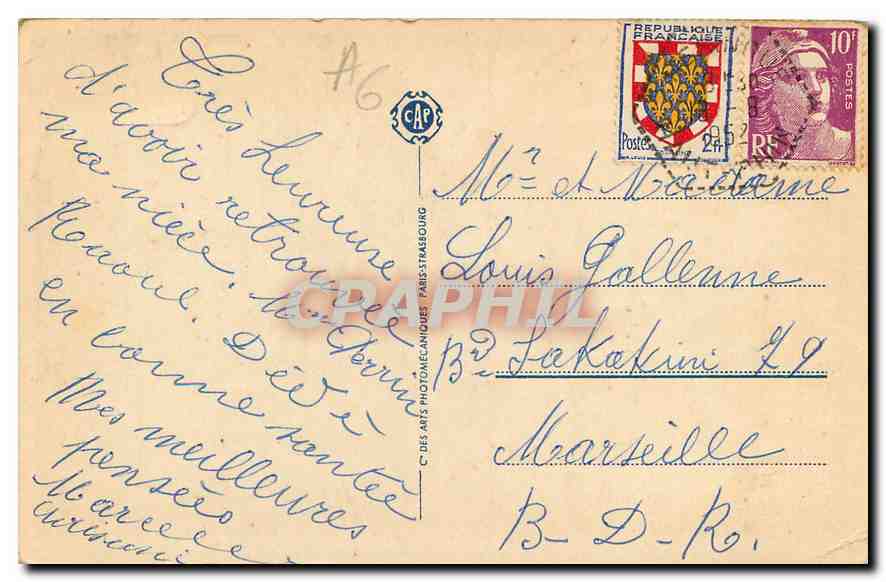 Très heureuse
d'avoir retrouvée
ma nièce. Mme Perrin
Raoul. Dédé
en bonne santée
Mes meilleures
pensées
Marcelle
A6
CAP
Cie DES ARTS PHOTOMECANIQUES PARIS-STRASBOURG
REPUBLIQUE
FRANCAISE
Postes 2fr
10F
POSTES
RF
Mr et Madame
Louis Gallenne
Bd Sakakini 79
Marseille
B-D-R.
CPAPHIL